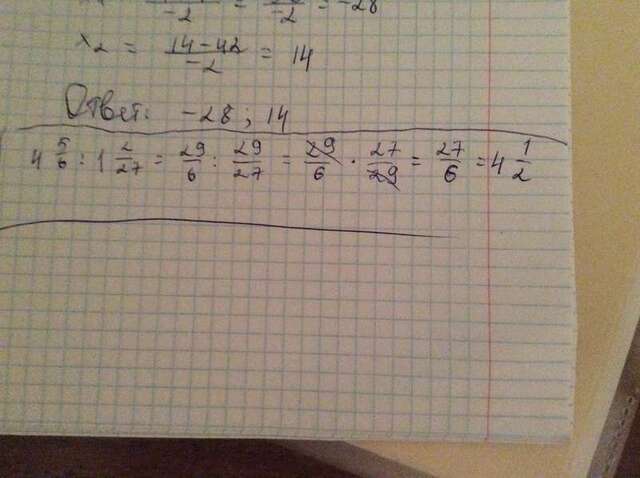 = = -28
-2 -2
x₂ = (14-42)/-2 = 14
Ответ: -28; 14
4 5/6 : 1 2/27 = 29/6 : 29/27 = 29/6 · 27/29 = 27/6 = 4 1/2